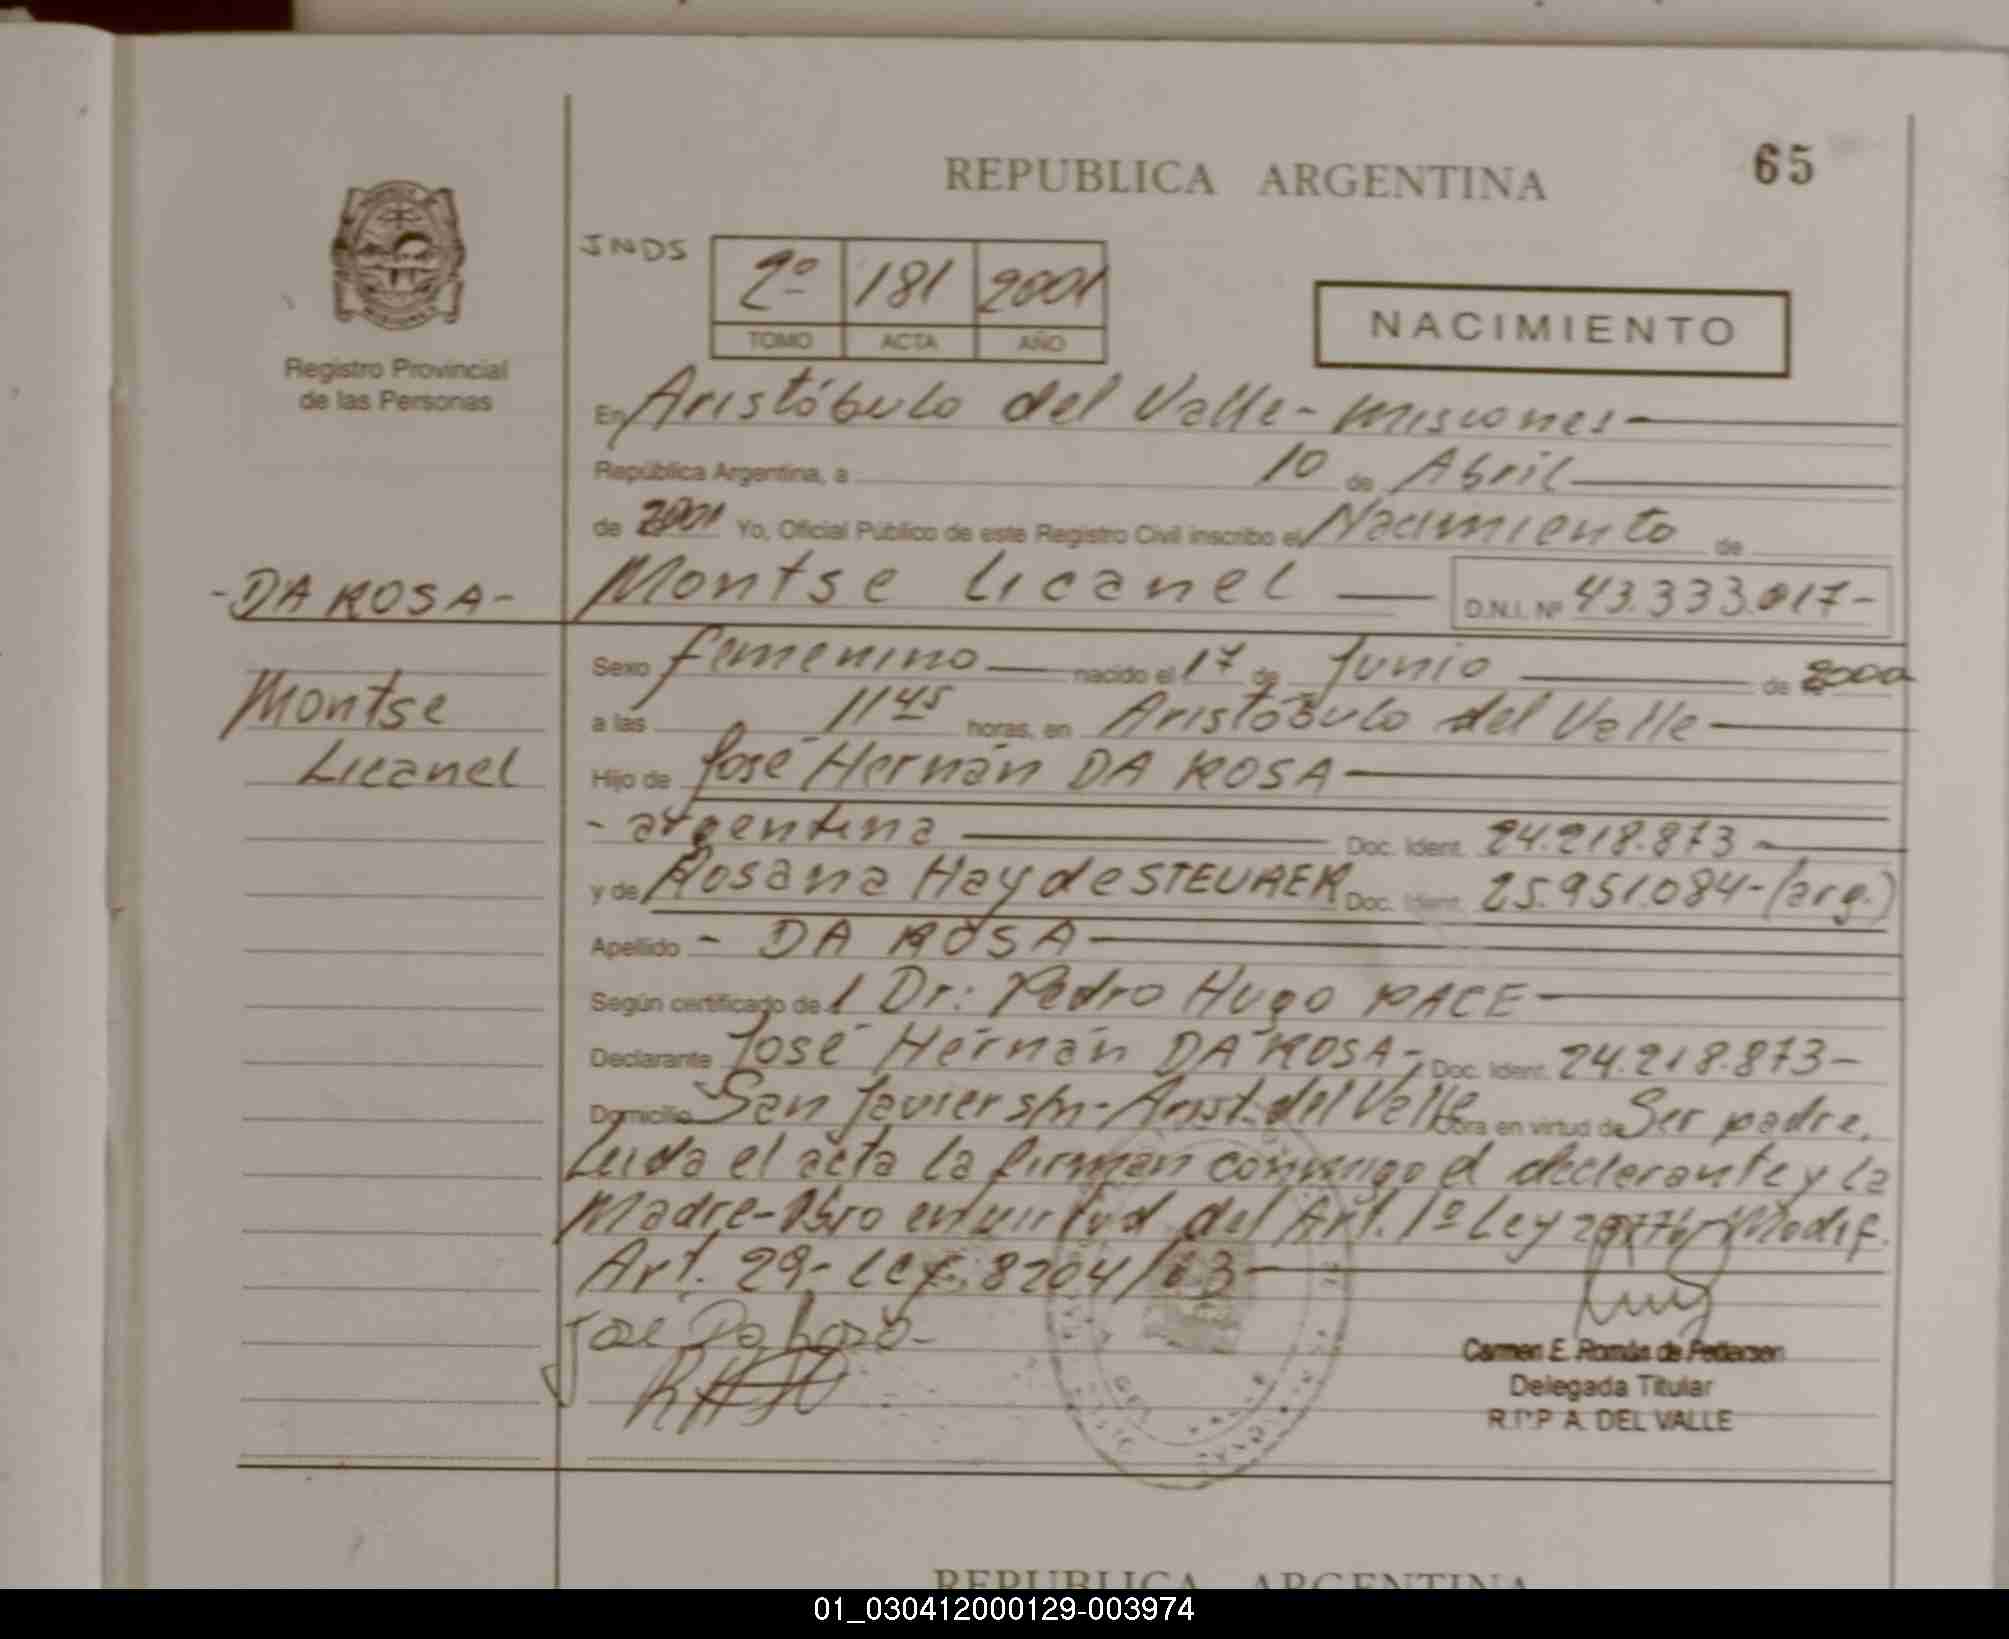 REPUBLICA ARGENTINA
65
JNDS
2º 181 2001
TOMO ACTA AÑO
NACIMIENTO
Registro Provincial
de las Personas
En Aristóbulo del Valle - Misiones
República Argentina, a 10 de Abril
de 2001 Yo, Oficial Público de este Registro Civil inscribo el Nacimiento de
-DA ROSA- Montse Licanel D.N.I. Nº 43.333.017-
Montse
Licanel
Sexo femenino nacido el 17 de Junio de 2000
a las 11 45 horas, en Aristóbulo del Valle
Hijo de José Hernán DA ROSA
- argentina Doc. Ident. 24.218.873
y de Rosana Hayde STEURER Doc. Ident. 25.951.084-(arg.)
Apellido - DA ROSA
Según certificado del Dr: Pedro Hugo PACE
Declarante José Hernán DA ROSA- Doc. Ident. 24.218.873-
Domicilio San Javier s/n- Arist. del Valle Obra en virtud de Ser padre.
Leida el acta la firman conmigo el declarante y la
Madre- Obro en virtud del Art. 1º Ley Modif.
Art. 29- Ley. 8204/63
José Da Rosa-
Carmen E. Román de Pedersen
Delegada Titular
R.P.P A. DEL VALLE
DEL VALLE
REPUBLICA ARGENTINA
01_030412000129-003974